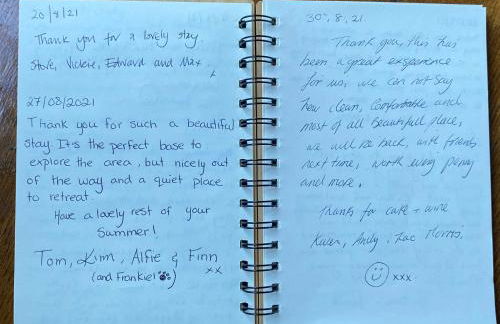 20/8/21
Thank you for a lovely stay.
Steve, Vickie, Edward and Max
x
27/08/2021
Thank you for such a beautiful
stay. It's the perfect base to
explore the area, but nicely out
of the way and a quiet place
to retreat.
Have a lovely rest of your
Summer!
Tom, Kim, Alfie & Finn
(and Frankie!) xx
30th, 8, 21.
Thank you, this has
been a great exsperance
for us, we can not say
how clean, comfortable and
most of all beautifull place,
we will be back, with friends
next time, worth every penny
and more.
Thanks for cake + wine
Karen, Andy, Zac
xxx